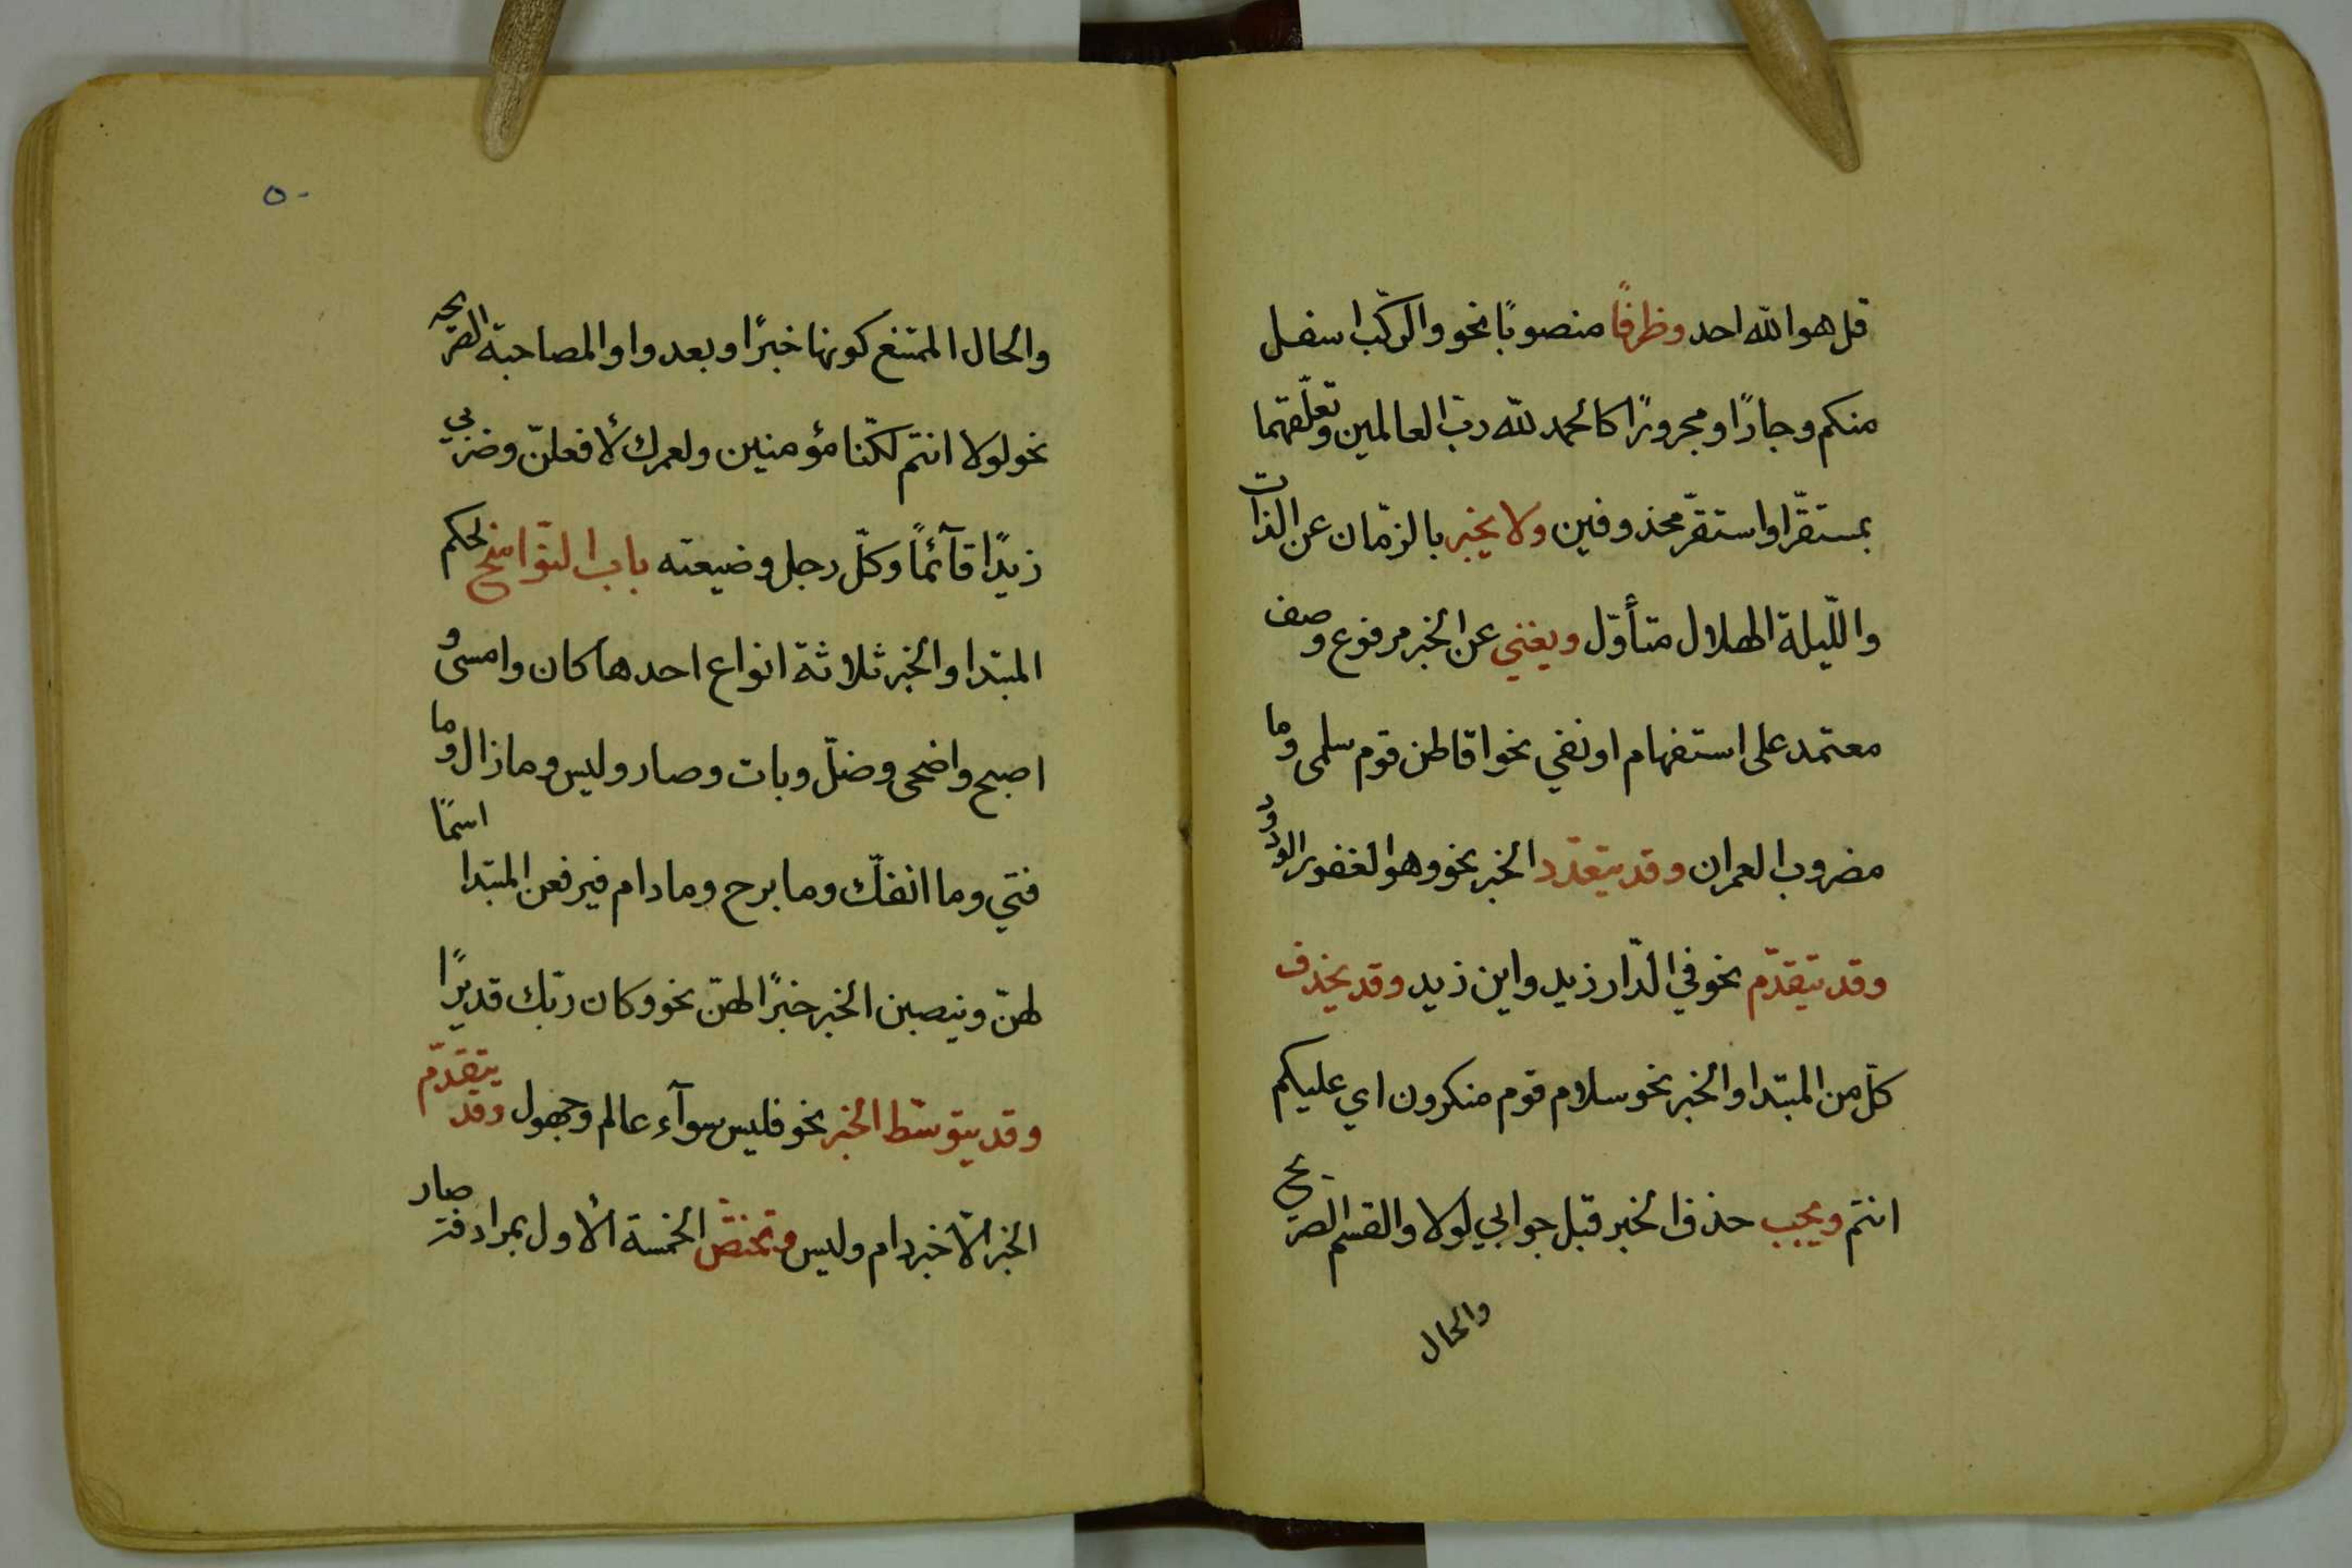 قل هو الله احد وظرفًا منصوبًا نحو والركّب اسفل
منكم وجارًا ومجرورًا كالحمد لله ربّ العالمين وتعلّقهما
بمستقرّ او استقرّ محذوفين ولا يخبر بالزّمان عن الذّات
والّليلة الهلال متأوّل ويغني عن الخبر مرفوع وصف
معتمد على استفهام او نفي نحو اقاطن قوم سلمى وما
مضروب العمران وقد يتعدّد الخبر نحو وهو الغفور الودود
وقد يتقدّم نحو في الدّار زيد واين زيد وقد يحذف
كلّ من المبتدا والخبر نحو سلام قوم منكرون اي عليكم
انتم ويجب حذف الخبر قبل جوابي لولا والقسم الصريح
والحال
٥٠
والحال الممتنع كونها خبرًا وبعد واو المصاحبة الصريحه
نحو لولا انتم لكنّا مؤمنين ولعمرك لأفعلنّ وضربي
زيدًا قآئمًا وكلّ رجل وضيعته باب النّواسخ لحكم
المبتدا والخبر ثلاثة انواع احدها كان وامسى و
اصبح واضحى وضلّ وبات وصار وليس وما زال وما
فتي وما انفكّ وما برح وما دام فيرفعن المبتدا اسمًا
لهنّ وينصبن الخبر خبرًا لهنّ نحو وكان ربّك قديرًا
وقد يتوسّط الخبر نحو فليس سوآء عالم وجهول وقد يتقدّم
الخبر الّا خبر دام وليس وتختصّ الخمسة الأول بمرادفة صار